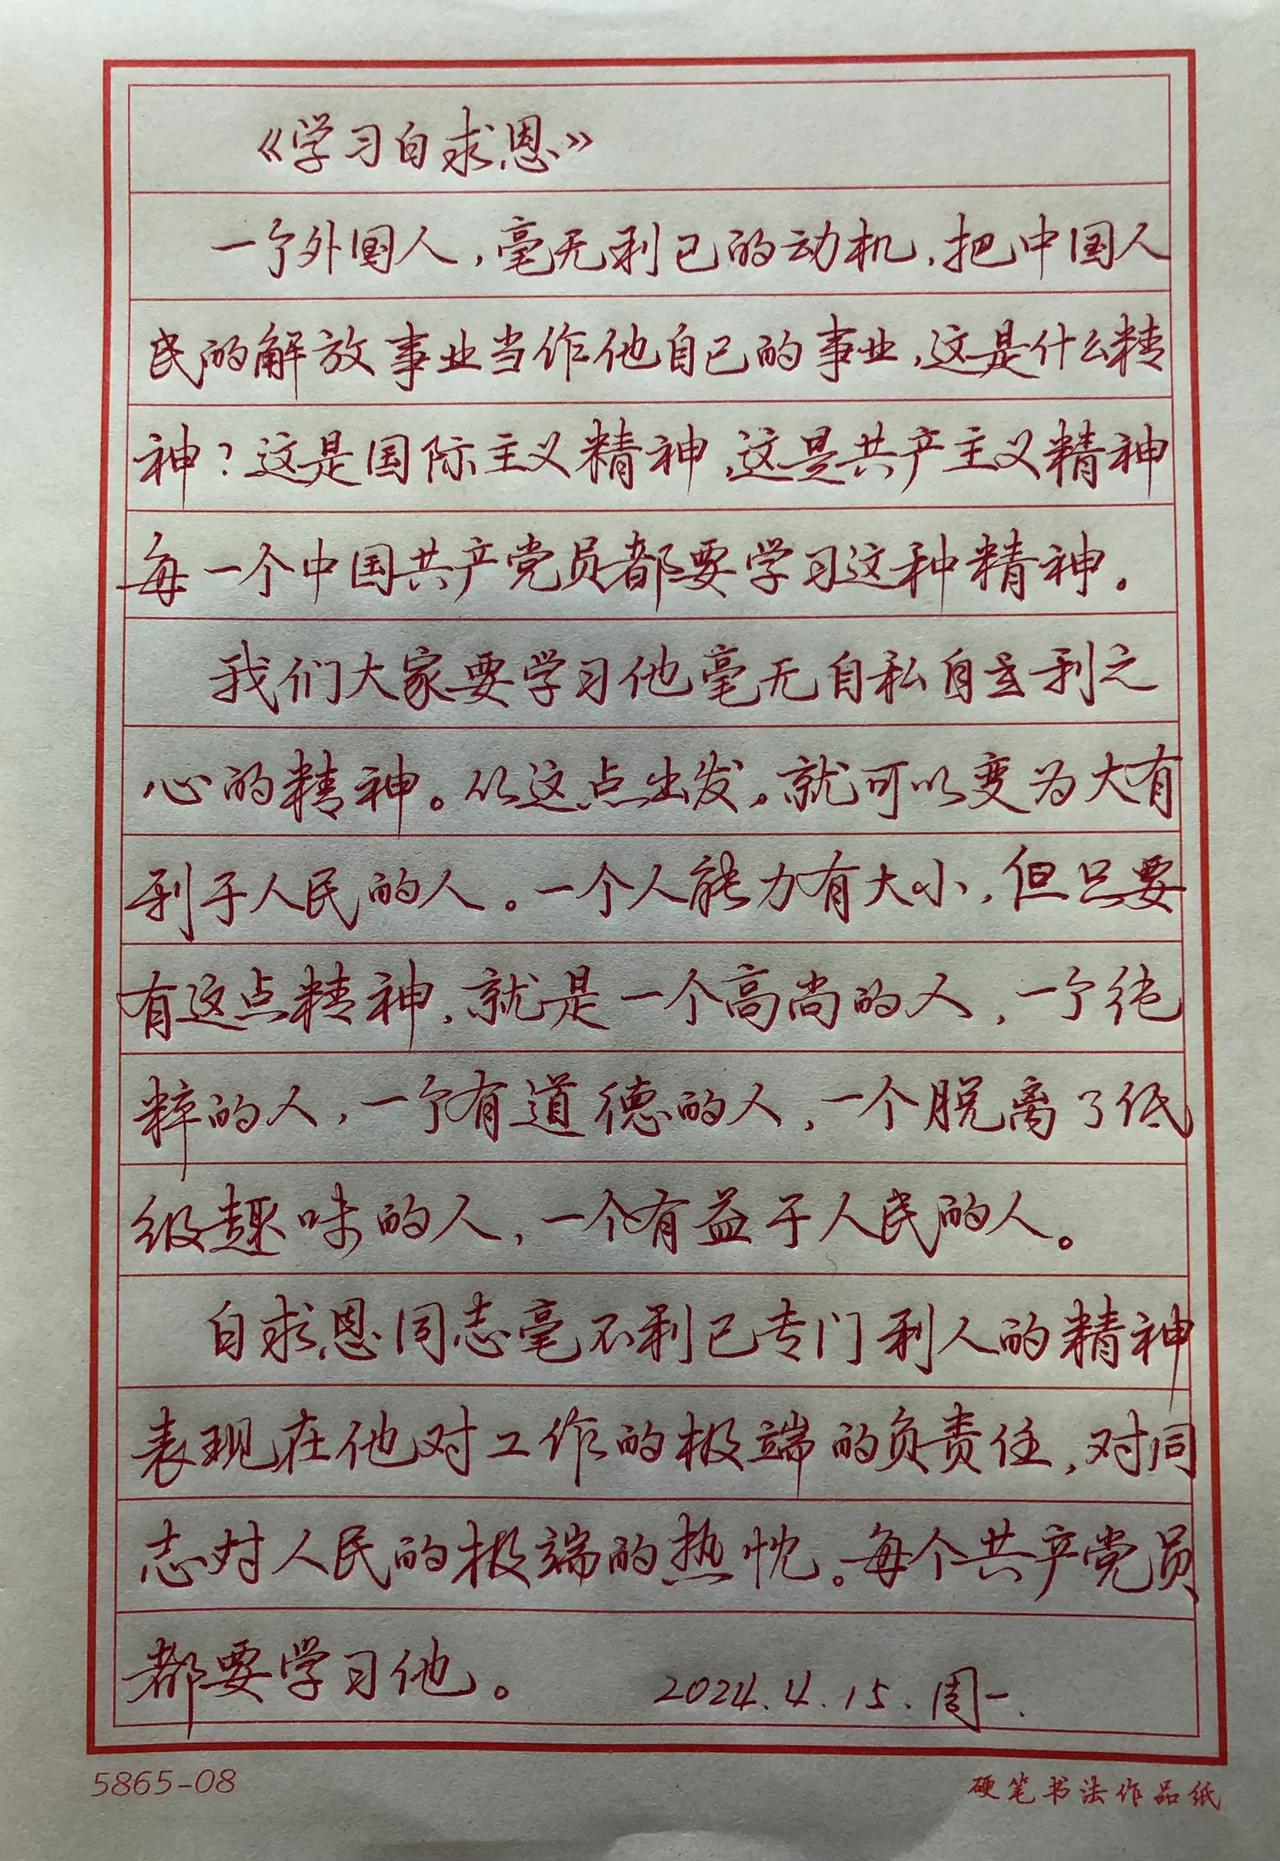 《学习白求恩》
一个外国人，毫无利己的动机，把中国人
民的解放事业当作他自己的事业，这是什么精
神？这是国际主义精神，这是共产主义精神
每一个中国共产党员都要学习这种精神。
我们大家要学习他毫无自私自利之
心的精神。从这点出发，就可以变为大有
利于人民的人。一个人能力有大小，但只要
有这点精神，就是一个高尚的人，一个纯
粹的人，一个有道德的人，一个脱离了低
级趣味的人，一个有益于人民的人。
白求恩同志毫不利己专门利人的精神
表现在他对工作的极端的负责任，对同
志对人民的极端的热忱。每个共产党员
都要学习他。 2024.4.15.周一.
5865-08 硬笔书法作品纸